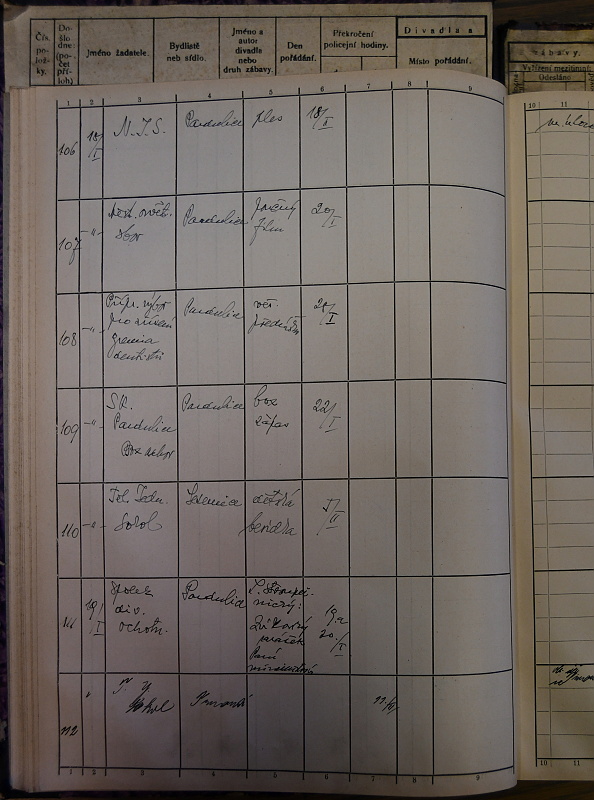 Čís. polož­ky.
Došlo dne: (počet příloh)
Jméno žadatele.
Bydliště neb sídlo.
Jméno a autor divadla nebo druh zábavy.
Den pořádání.
Překročení policejní hodiny.
Divadla a
Místo pořádání.
zábavy.
Vyřízení mezitimní
Odesláno
1 2 3 4 5 6 7 8 9 10 11
106 18/I N.J.S. Pardubice ples 18/I
107 -"- sbor Pardubice film 20/I
108 -"- Příp. výbor
gremia
Pardubice
več.
přednáška
109 -"- SK.
Pardubice
Pardubice
box
zápas
22/I
110 -"- Těl. Jedn.
Sokol
Semenice
dětská
besídka
5/II
111 19/I Spolek
div.
ochotn.
Pardubice
L. Stroupež-
nický:
Zvíkovský
rarášek
Paní
mincmistrová
19. a
20./I
112 T. J.
Sokol
1 2 3 4 5 6 7 8 9 10 11